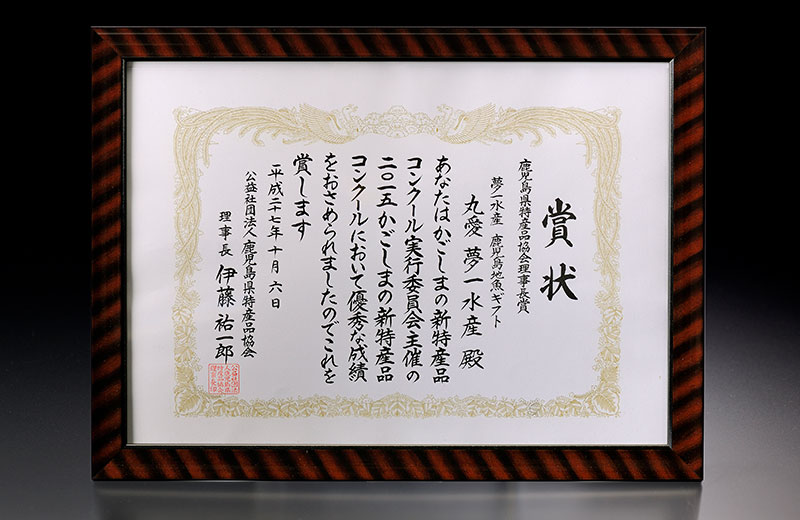 賞状
鹿児島県特産品協会理事長賞
夢一水産 鹿児島地魚ギフト
丸愛 夢一水産 殿
あなたはかごしまの新特産品
コンクール実行委員会主催の
二〇一五かごしまの新特産品
コンクールにおいて優秀な成績
をおさめられましたのでこれを
賞します
平成二十七年十月六日
公益社団法人鹿児島県特産品協会
理事長 伊藤祐一郎